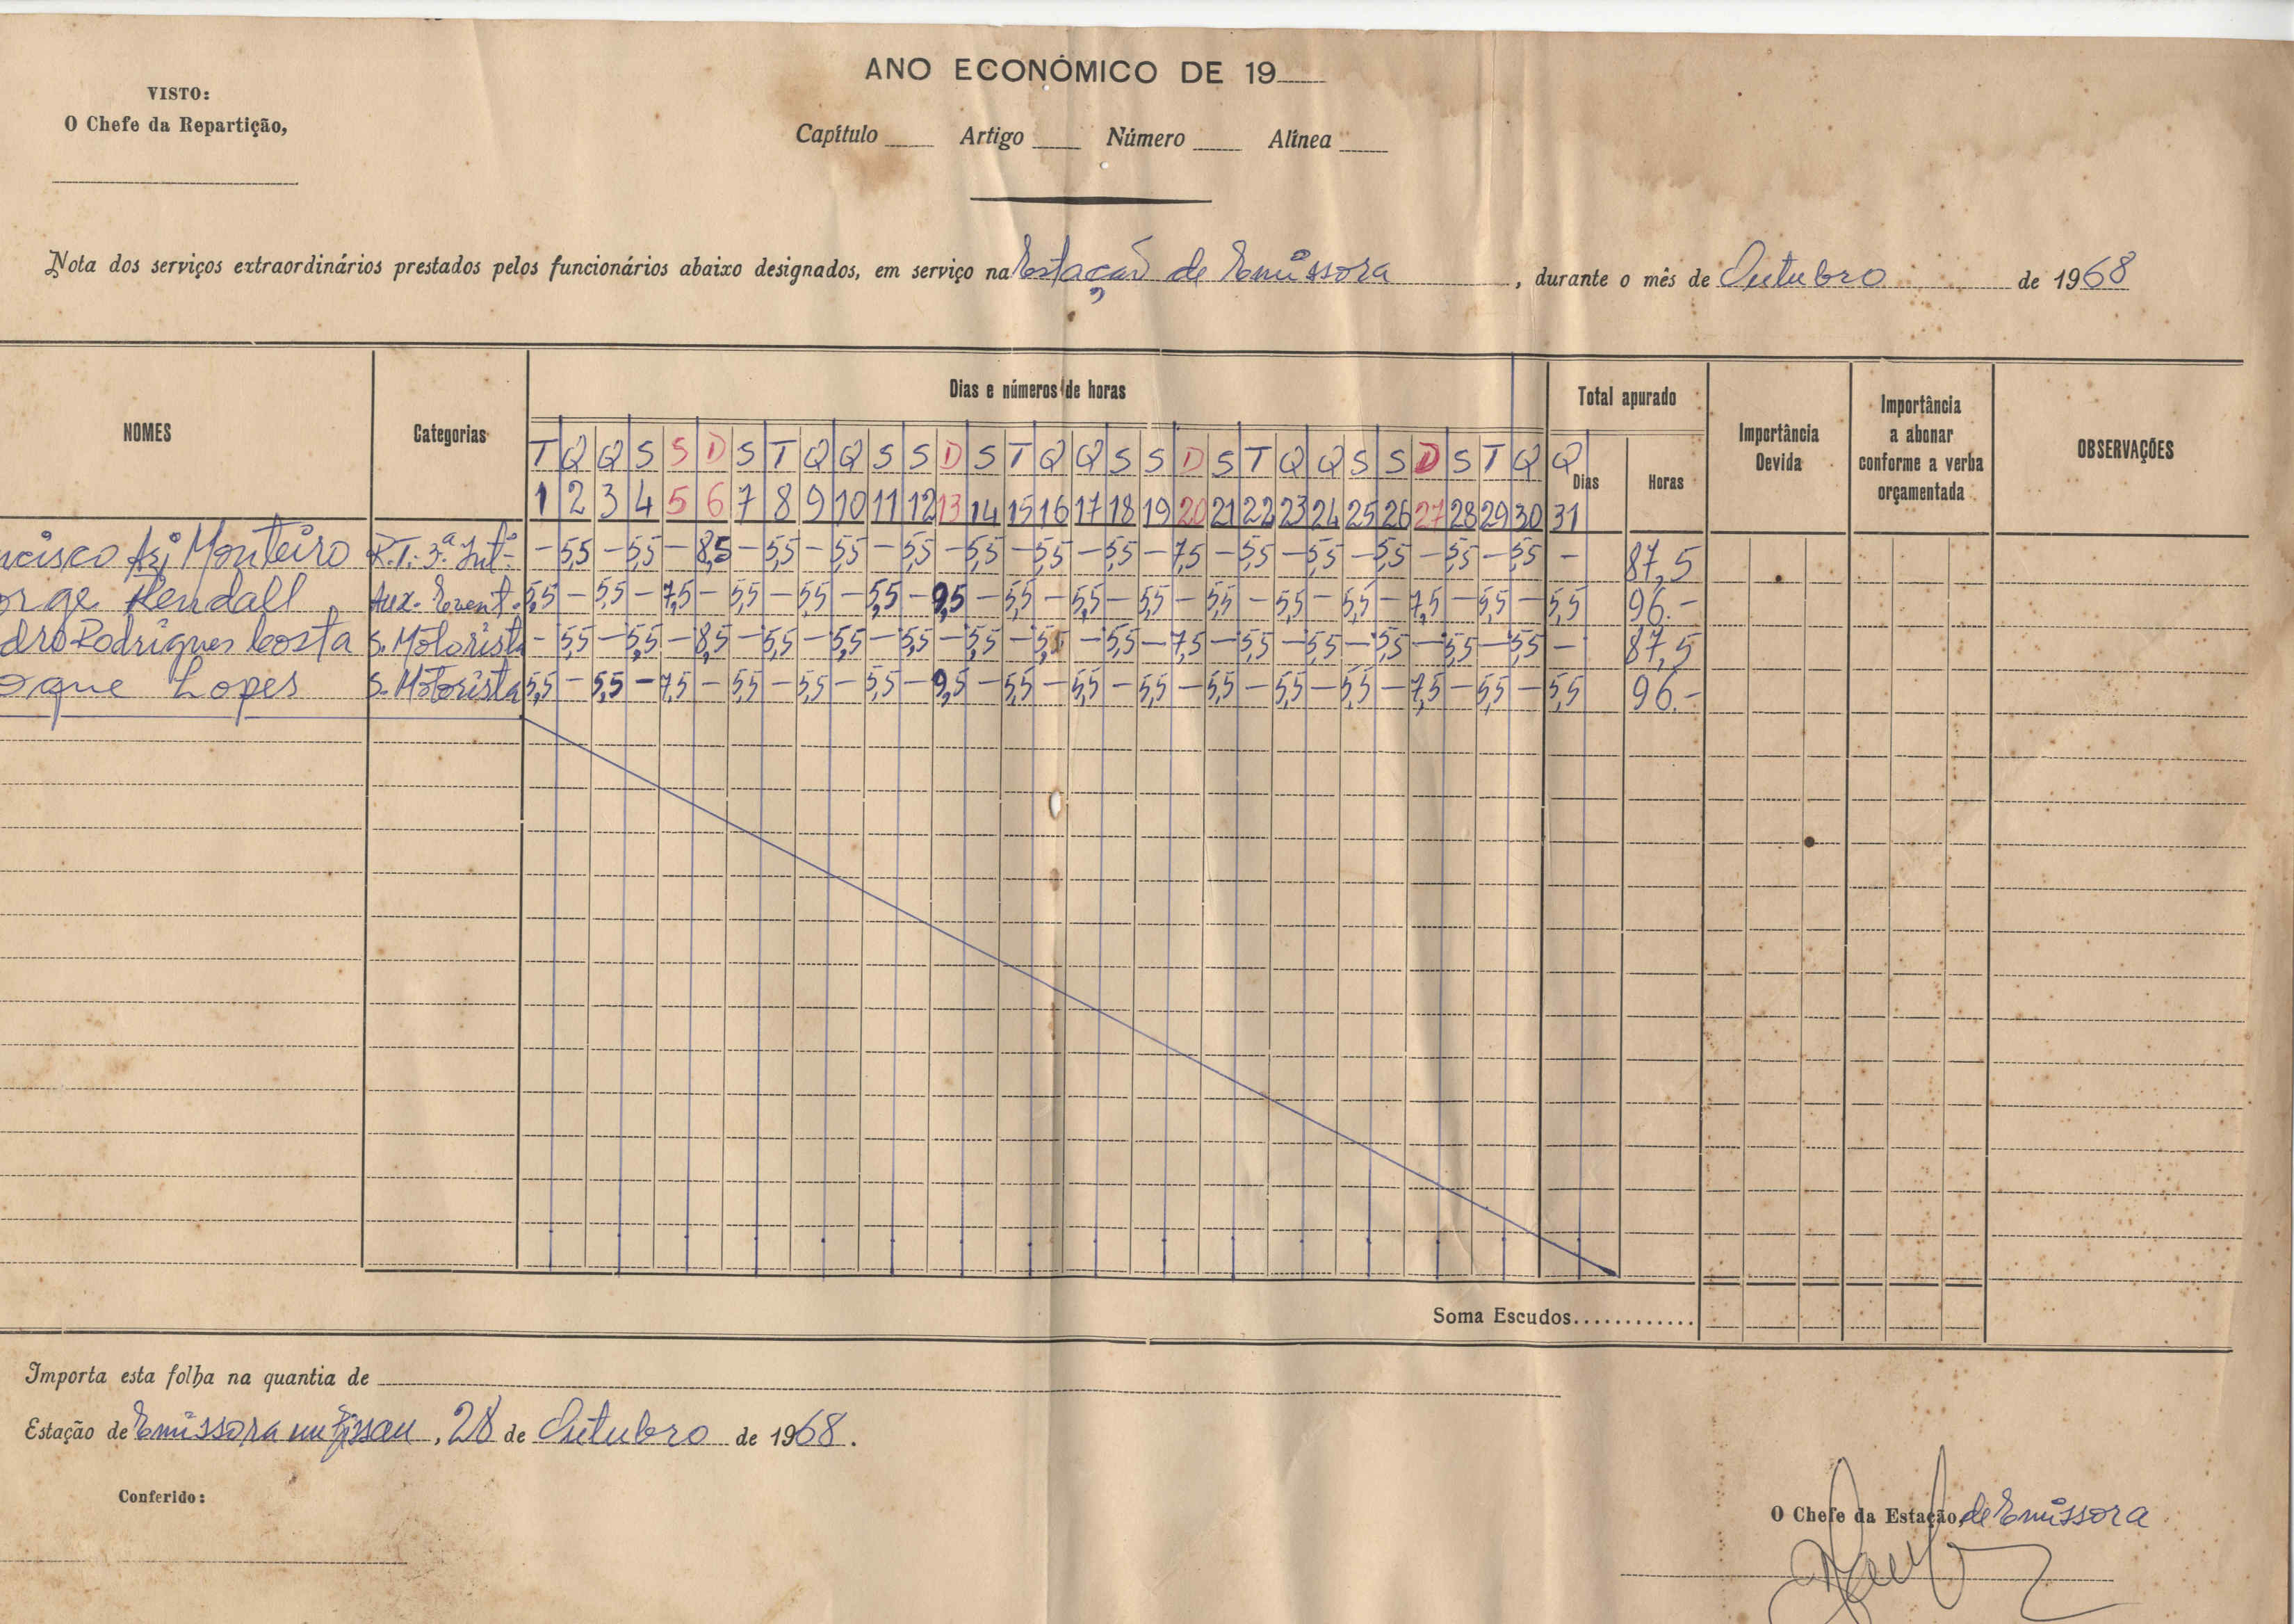 ANO ECONÓMICO DE 19
VISTO:
O Chefe da Repartição,
Capítulo Artigo Número Alínea
Nota dos serviços extraordinários prestados pelos funcionários abaixo designados, em serviço na Estação de Emissora, durante o mês de Outubro de 1968
NOMES Categorias Dias e números de horas Total apurado Importância Devida Importância a abonar conforme a verba orçamentada OBSERVAÇÕES
T Q Q S S D S T Q Q S S D S T Q Q S S D S T Q Q S S D S T Q Q Dias Horas
1 2 3 4 5 6 7 8 9 10 11 12 13 14 15 16 17 18 19 20 21 22 23 24 25 26 27 28 29 30 31
ncisco Monteiro R.T. 3.ª Int.º - 5,5 - 5,5 - 8,5 - 5,5 - 5,5 - 5,5 - 5,5 - 5,5 - 5,5 - 7,5 - 5,5 - 5,5 - 5,5 - 5,5 - 5,5 - 87,5
orge Rendall Aux. Event. 5,5 - 5,5 - 7,5 - 5,5 - 5,5 - 5,5 - 9,5 - 5,5 - 5,5 - 5,5 - 5,5 - 5,5 - 5,5 - 7,5 - 5,5 - 5,5 96.-
dro Rodrigues Costa S. Motorista - 5,5 - 5,5 - 8,5 - 5,5 - 5,5 - 5,5 - 5,5 - 5,5 - 5,5 - 7,5 - 5,5 - 5,5 - 5,5 - 5,5 - 5,5 - 87,5
oque Lopes S. Motorista 5,5 - 5,5 - 7,5 - 5,5 - 5,5 - 5,5 - 9,5 - 5,5 - 5,5 - 5,5 - 5,5 - 5,5 - 5,5 - 7,5 - 5,5 - 5,5 96.-
Soma Escudos............
Importa esta folha na quantia de
Estação de Emissora em Bissau, 28 de Outubro de 1968.
Conferido:
O Chefe da Estação, de Emissora